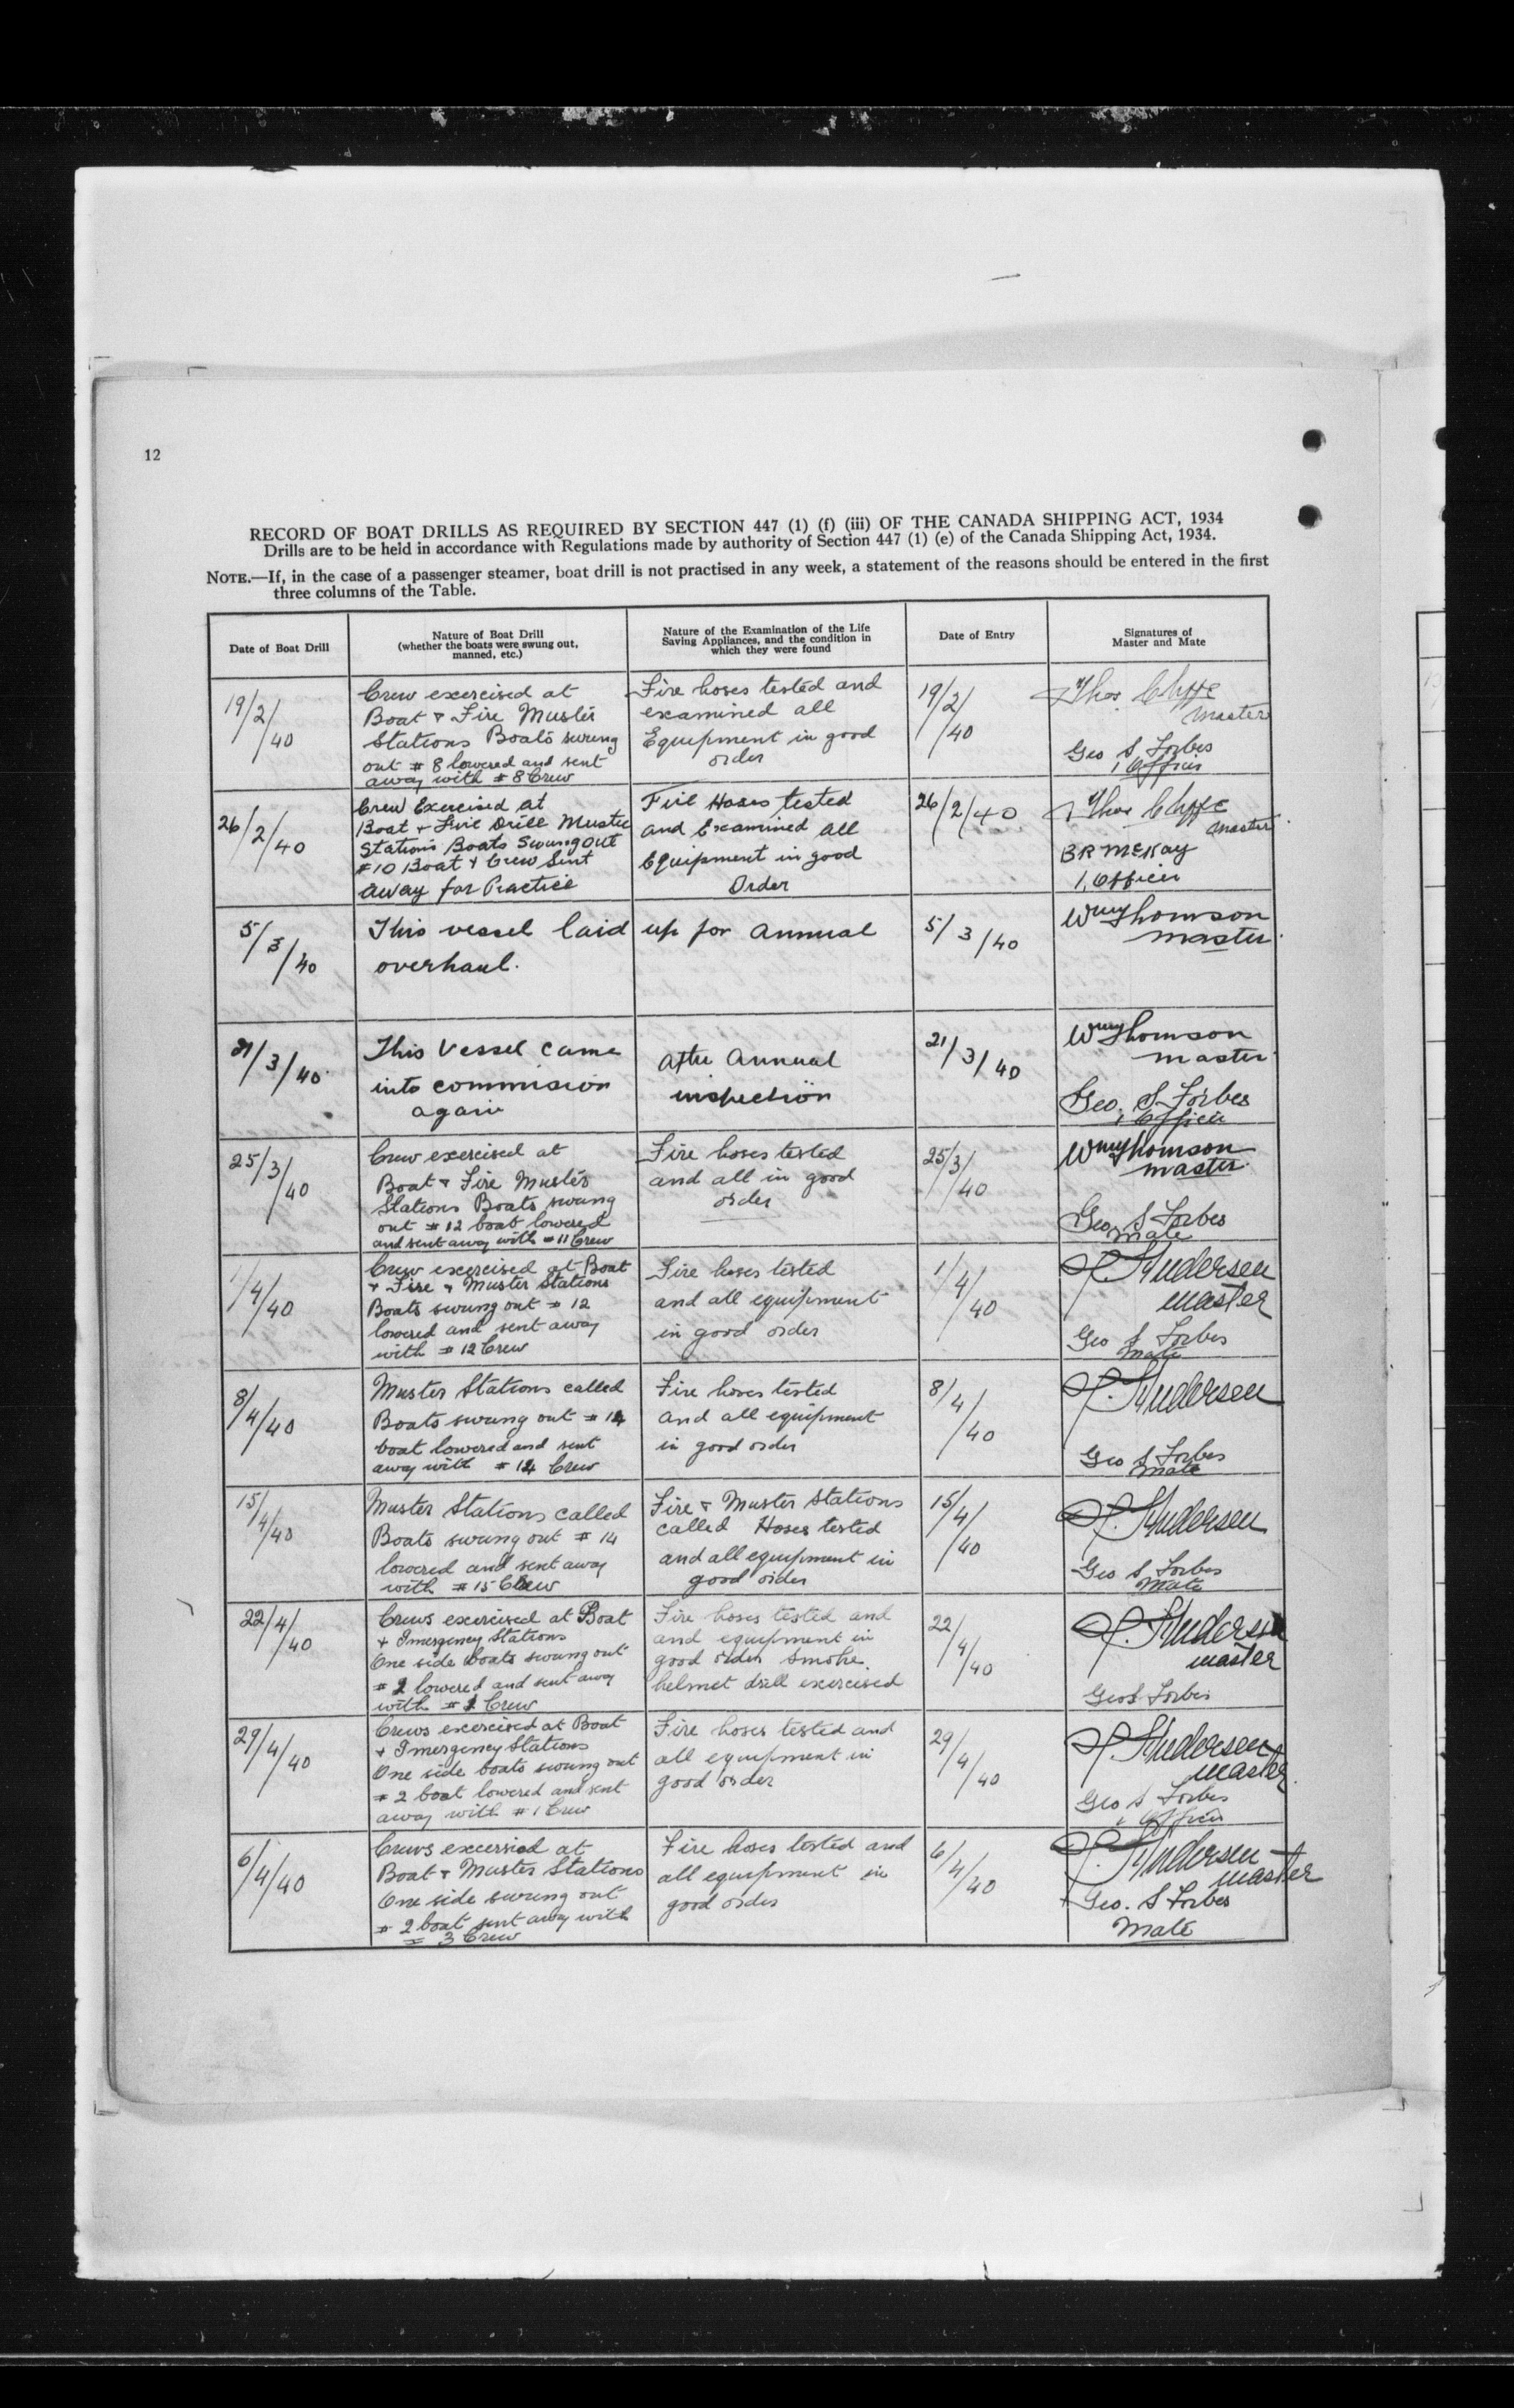 12
RECORD OF BOAT DRILLS AS REQUIRED BY SECTION 447 (1) (f) (iii) OF THE CANADA SHIPPING ACT, 1934
Drills are to be held in accordance with Regulations made by authority of Section 447 (1) (e) of the Canada Shipping Act, 1934.
NOTE.—If, in the case of a passenger steamer, boat drill is not practised in any week, a statement of the reasons should be entered in the first
three columns of the Table.
Date of Boat Drill
Nature of Boat Drill
(whether the boats were swung out,
manned, etc.)
Nature of the Examination of the Life
Saving Appliances, and the condition in
which they were found
Date of Entry
Signatures of
Master and Mate
19/2/40
Crew exercised at
Boat & Fire Muster
Stations Boats swung
out # 8 lowered and sent
away with # 8 Crew
Fire hoses tested and
examined all
Equipment in good
order
19/2/40
Thos. Cliffe
master
Geo S Forbes
1 Officer
26/2/40
Crew Exercised at
Boat & Fire Drill Muster
Stations Boats Swung out
#10 Boat & Crew Sent
away for Practice
Fire Hoses tested
and Examined all
Equipment in good
Order
26/2/40
Thos Cliffe
master
BR McKay
1, Officer
5/3/40
This vessel laid up for annual
overhaul.
5/3/40
Wm Thomson
master.
21/3/40
This Vessel came
into commision
again
After Annual
inspection
21/3/40
Wm Thomson
master
Geo. S Forbes
1 Officer
25/3/40
Crew exercised at
Boat & Fire Muster
Stations Boats swung
out # 12 boat lowered
and sent away with # 11 Crew
Fire hoses tested
and all in good
order
25/3/40
Wm Thomson
master.
Geo S Forbes
Mate
1/4/40
Crew exercised at Boat
& Fire & Muster Stations
Boats swung out # 12
lowered and sent away
with # 12 Crew
Fire hoses tested
and all equipment
in good order
1/4/40
Andersen
master
Geo S Forbes
Mate
8/4/40
Muster Stations called
Boats swung out # 14
boat lowered and sent
away with # 14 Crew
Fire hoses tested
and all equipment
in good order
8/4/40
Andersen
Geo S Forbes
Mate
15/4/40
Muster Stations called
Boats swung out # 14
lowered and sent away
with # 15 Crew
Fire & Muster Stations
called Hoses tested
and all equipment in
good order
15/4/40
Andersen
Geo S Forbes
Mate
22/4/40
Crews exercised at Boat
& Imergency Stations
One side boats swung out
# 2 lowered and sent away
with # Crew
Fire hoses tested and
and equipment in
good order Smoke
helmet drill exercised
22/4/40
Andersen
master
Geo S Forbes
29/4/40
Crews exercised at Boat
& Imergency Stations
One side boats swung out
# 2 boat lowered and sent
away with # 1 Crew
Fire hoses tested and
all equipment in
good order
29/4/40
Andersen
master.
Geo S Forbes
1 Officer
6/4/40
Crews excersied at
Boat & Muster Stations
One side swung out
# 2 boat sent away with
= 3 Crew
Fire hoses tested and
all equipment in
good order
6/4/40
Andersen
master
Geo. S Forbes
Mate